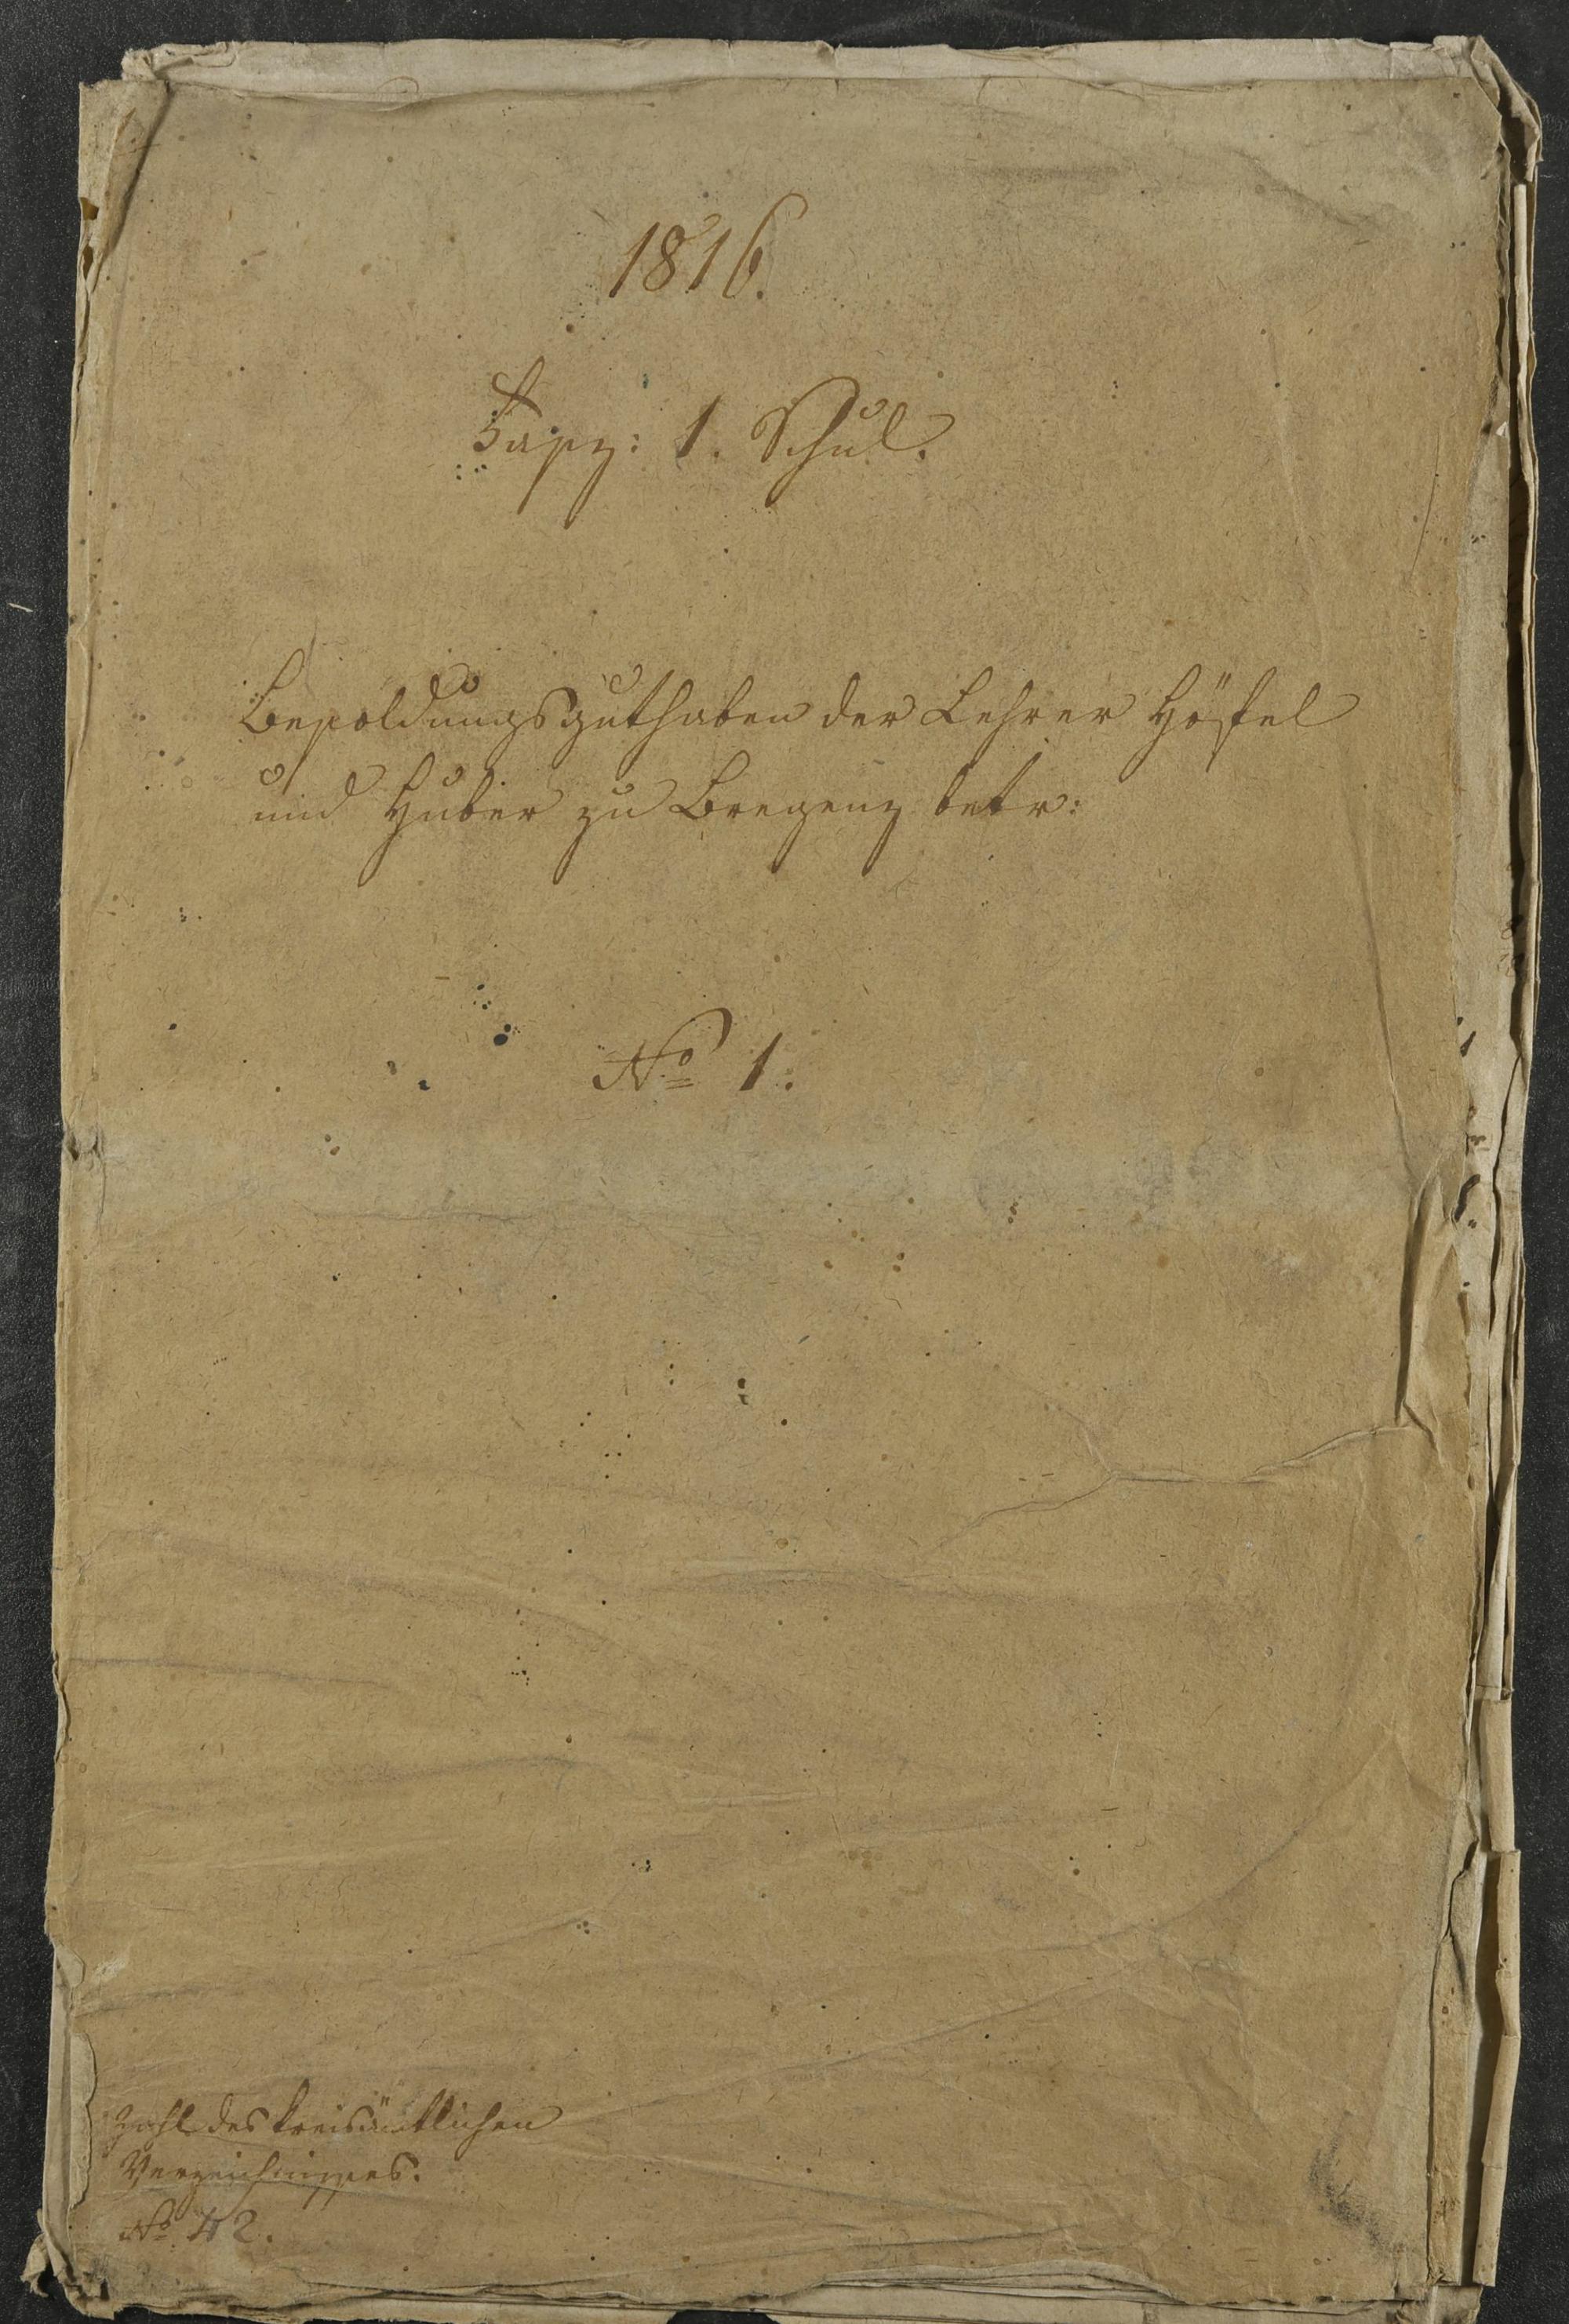 1816.
Fasz: 1. Schul.
Besoldungsguthaben der Lehrer Höfel
und Huber zu Bregenz betr:
No 1.
Zahl des kreisämtlichen
Verzeichnisses.
No 42.